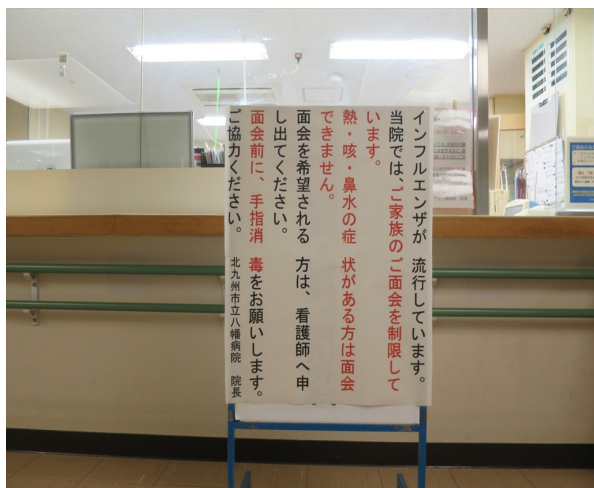 インフルエンザが 流行しています。
当院では、ご家族のご面会を制限して
います。
熱・咳・鼻水の症 状がある方は面会
できません。
面会を希望される 方は、看護師へ申
し出てください。
面会前に、手指消 毒をお願いします。
ご協力ください。
北九州市立八幡病院 院長